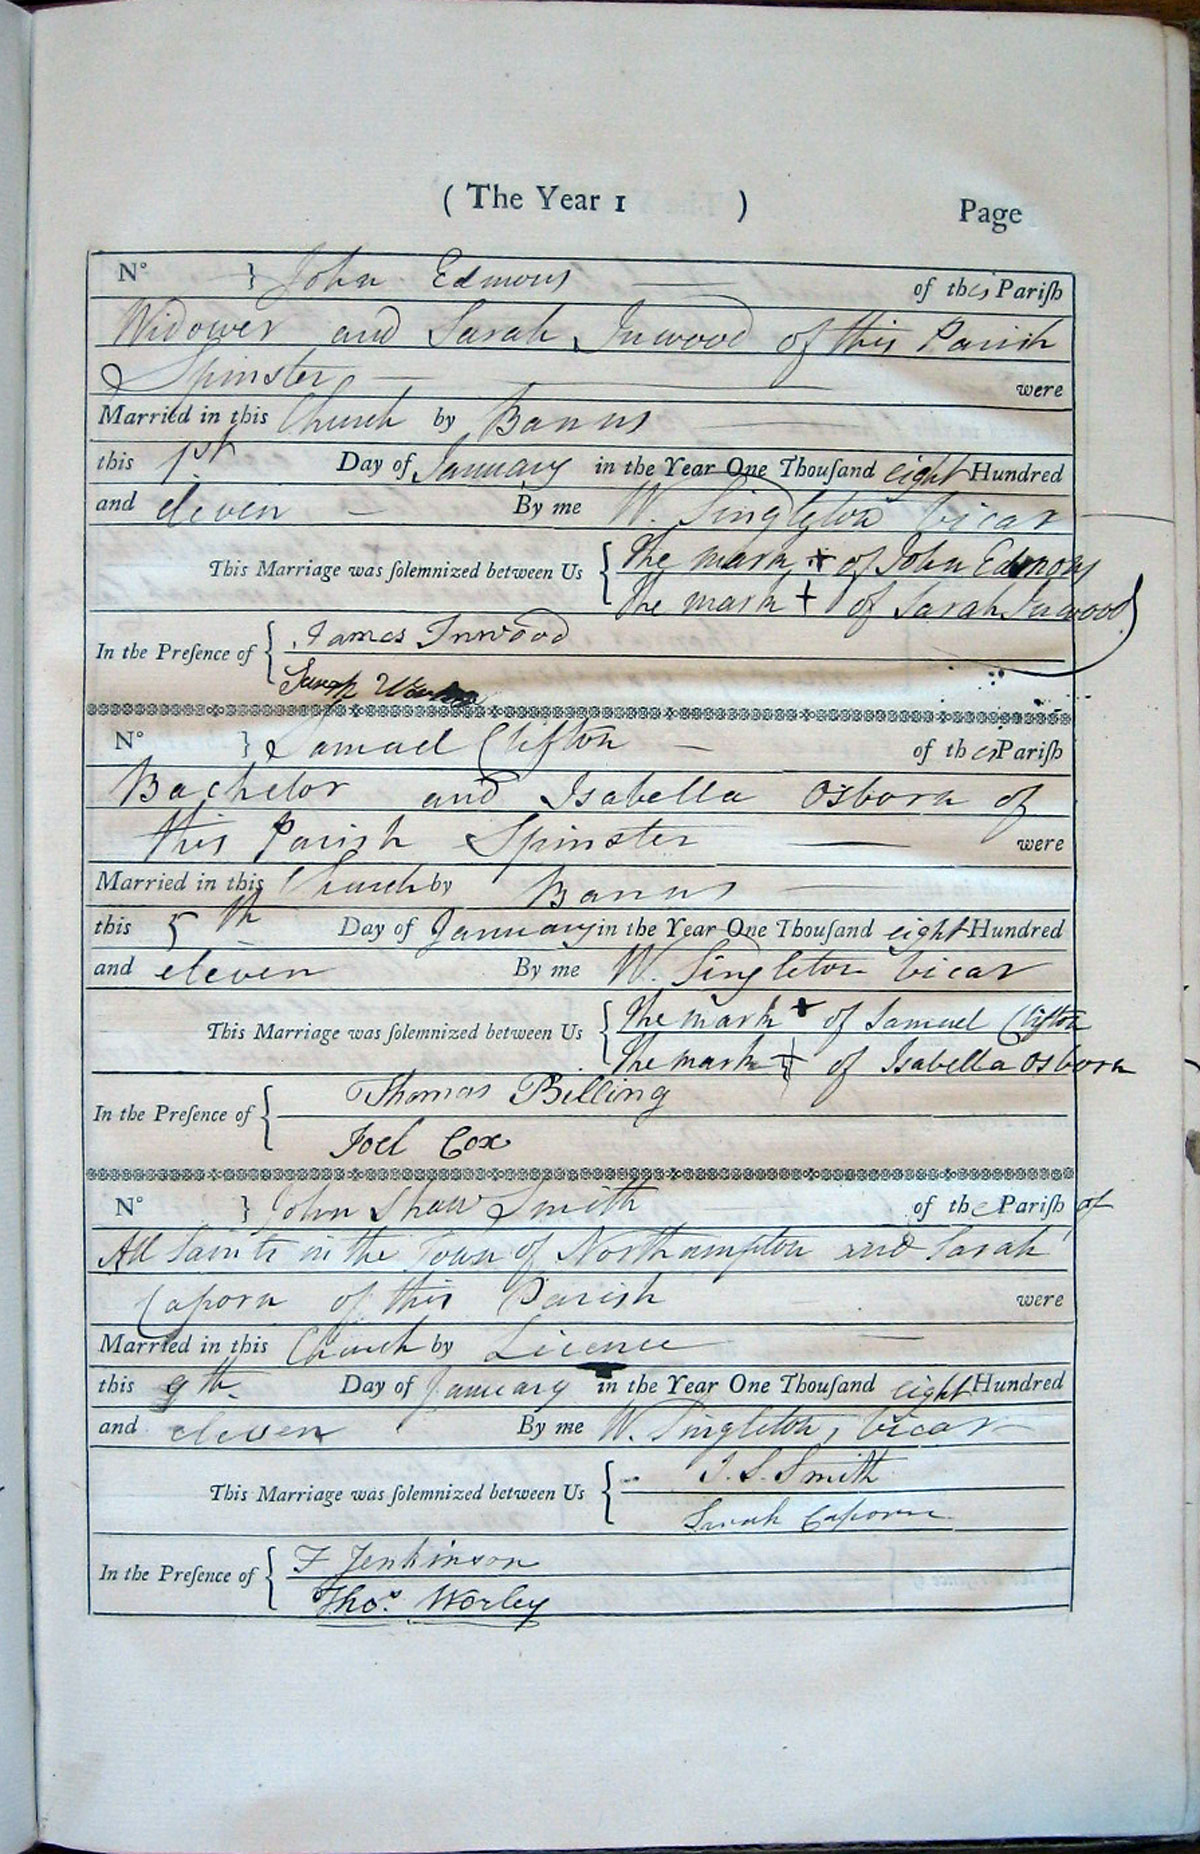 ( The Year 1 ) Page
No } John Edmons of this Pariſh
Widower and Sarah Inwood of this Parish
Spinster were
Married in this Church by Banns
this 1st Day of January in the Year One Thouſand eight Hundred
and eleven By me W. Singleton Vicar
This Marriage was ſolemnized between Us { The mark + of John Edmons
The mark + of Sarah Inwood
In the Preſence of { James Inwood
No } Samuel Clifton of this Pariſh
Bachelor and Isabella Osborn of
this Parish Spinster were
Married in this Church by Banns
this 5th Day of January in the Year One Thouſand eight Hundred
and eleven By me W. Singleton Vicar
This Marriage was ſolemnized between Us { The mark + of Samuel Clifton
The mark + of Isabella Osborn
In the Preſence of { Thomas Billing
Joel Cox
No } John Shaw Smith of the Pariſh of
All Saints in the Town of Northampton and Sarah
Caporn of this Parish were
Married in this Church by Licence
this 9th. Day of January in the Year One Thouſand eight Hundred
and eleven By me W. Singleton, Vicar
This Marriage was ſolemnized between Us { J. S. Smith
Sarah Caporn
In the Preſence of { F Jenkinson
Thos. Worley